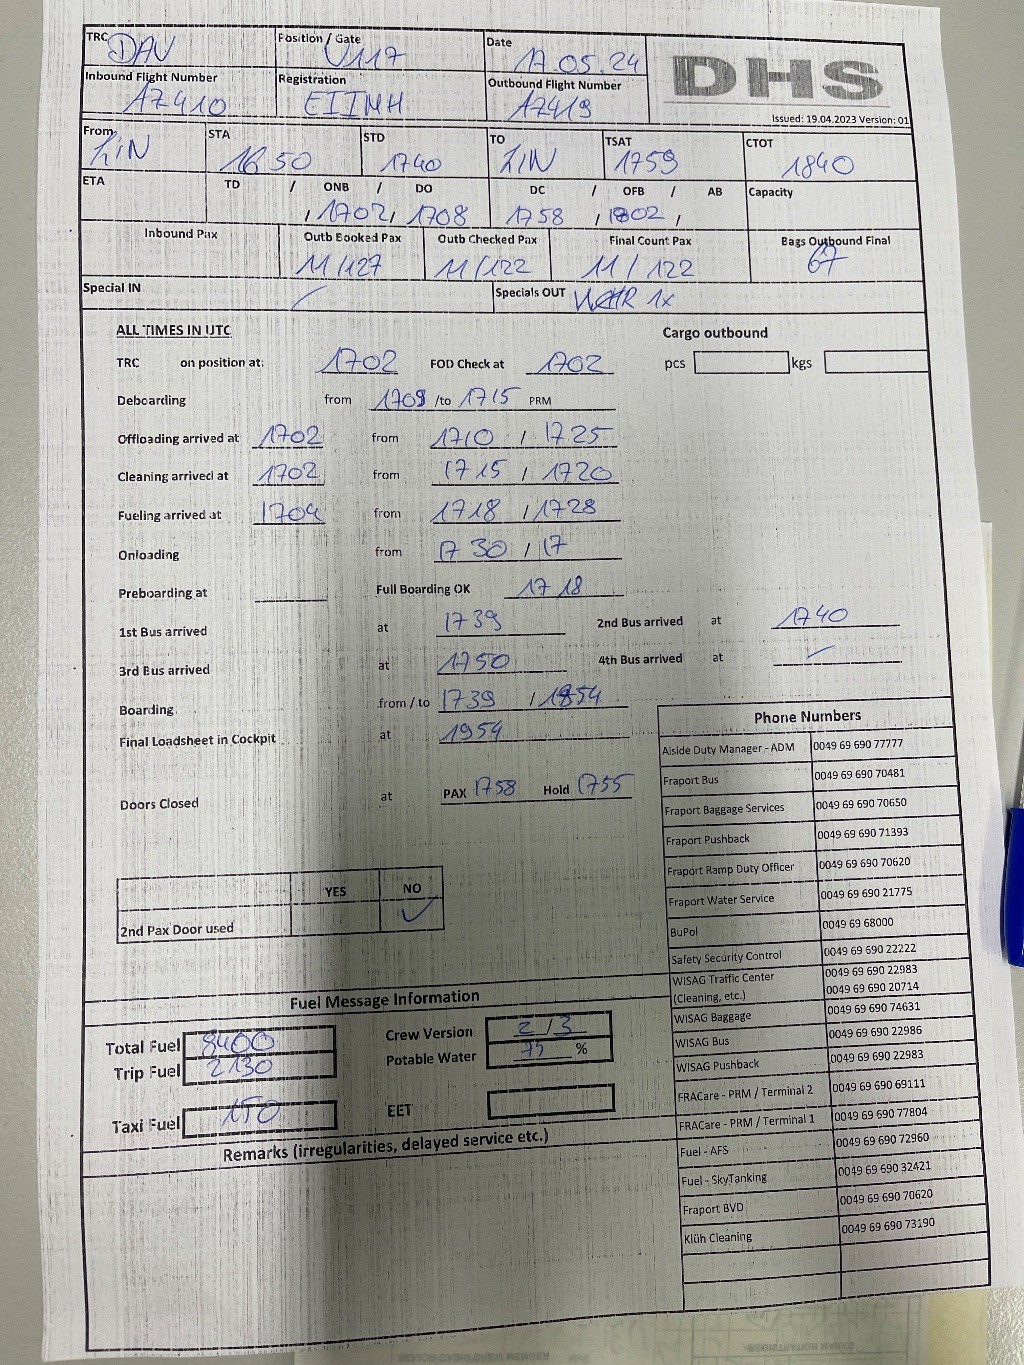 TRC DAV Position / Gate V117 Date 17.05.24
DHS
Inbound Flight Number AZ410 Registration EIINH Outbound Flight Number AZ419
Issued: 19.04.2023 Version: 01
From LIN STA 1650 STD 1740 TO LIN TSAT 1759 CTOT 1840
ETA TD / ONB / DO DC / OFB / AB Capacity
, 1702, 1708 1758 , 1802 ,
Inbound Pax Outb Booked Pax Outb Checked Pax Final Count Pax Bags Outbound Final
11/127 11/122 11/122 67
Special IN Specials OUT WCHR 1x
ALL TIMES IN UTC Cargo outbound
TRC on position at: 1702 FOD Check at 1702 pcs kgs
Deboarding from 1709 /to 1715 PRM
Offloading arrived at 1702 from 1710 / 1725
Cleaning arrived at 1702 from 1715 / 1720
Fueling arrived at 1704 from 1718 / 1728
Onloading from 1730 / 17
Preboarding at Full Boarding OK 1718
1st Bus arrived at 1739 2nd Bus arrived at 1740
3rd Bus arrived at 1750 4th Bus arrived at
Boarding from / to 1739 / 1854
Final Loadsheet in Cockpit at 1954
Doors Closed at PAX 1758 Hold 1755
YES NO
2nd Pax Door used
Phone Numbers
Aiside Duty Manager - ADM 0049 69 690 77777
Fraport Bus 0049 69 690 70481
Fraport Baggage Services 0049 69 690 70650
Fraport Pushback 0049 69 690 71393
Fraport Ramp Duty Officer 0049 69 690 70620
Fraport Water Service 0049 69 690 21775
BuPol 0049 69 68000
Safety Security Control 0049 69 690 22222
WISAG Traffic Center 0049 69 690 22983
(Cleaning, etc.) 0049 69 690 20714
WISAG Baggage 0049 69 690 74631
WISAG Bus 0049 69 690 22986
WISAG Pushback 0049 69 690 22983
FRACare - PRM / Terminal 2 0049 69 690 69111
FRACare - PRM / Terminal 1 0049 69 690 77804
Fuel - AFS 0049 69 690 72960
Fuel - SkyTanking 0049 69 690 32421
Fraport BVD 0049 69 690 70620
Klüh Cleaning 0049 69 690 73190
Fuel Message Information
Total Fuel 8400 Crew Version 2/3
Trip Fuel 2130 Potable Water 75 %
Taxi Fuel 150 EET
Remarks (irregularities, delayed service etc.)